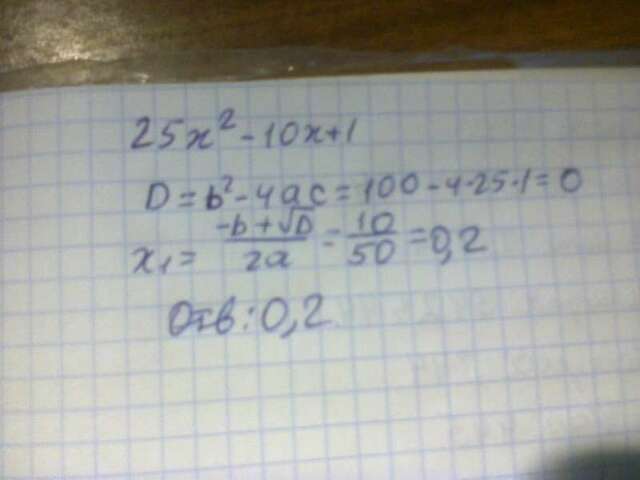 25x² - 10x + 1
D = b² - 4ac = 100 - 4·25·1 = 0
x₁ = (-b + √D)/(2a) = 10/50 = 0,2
Отв: 0,2